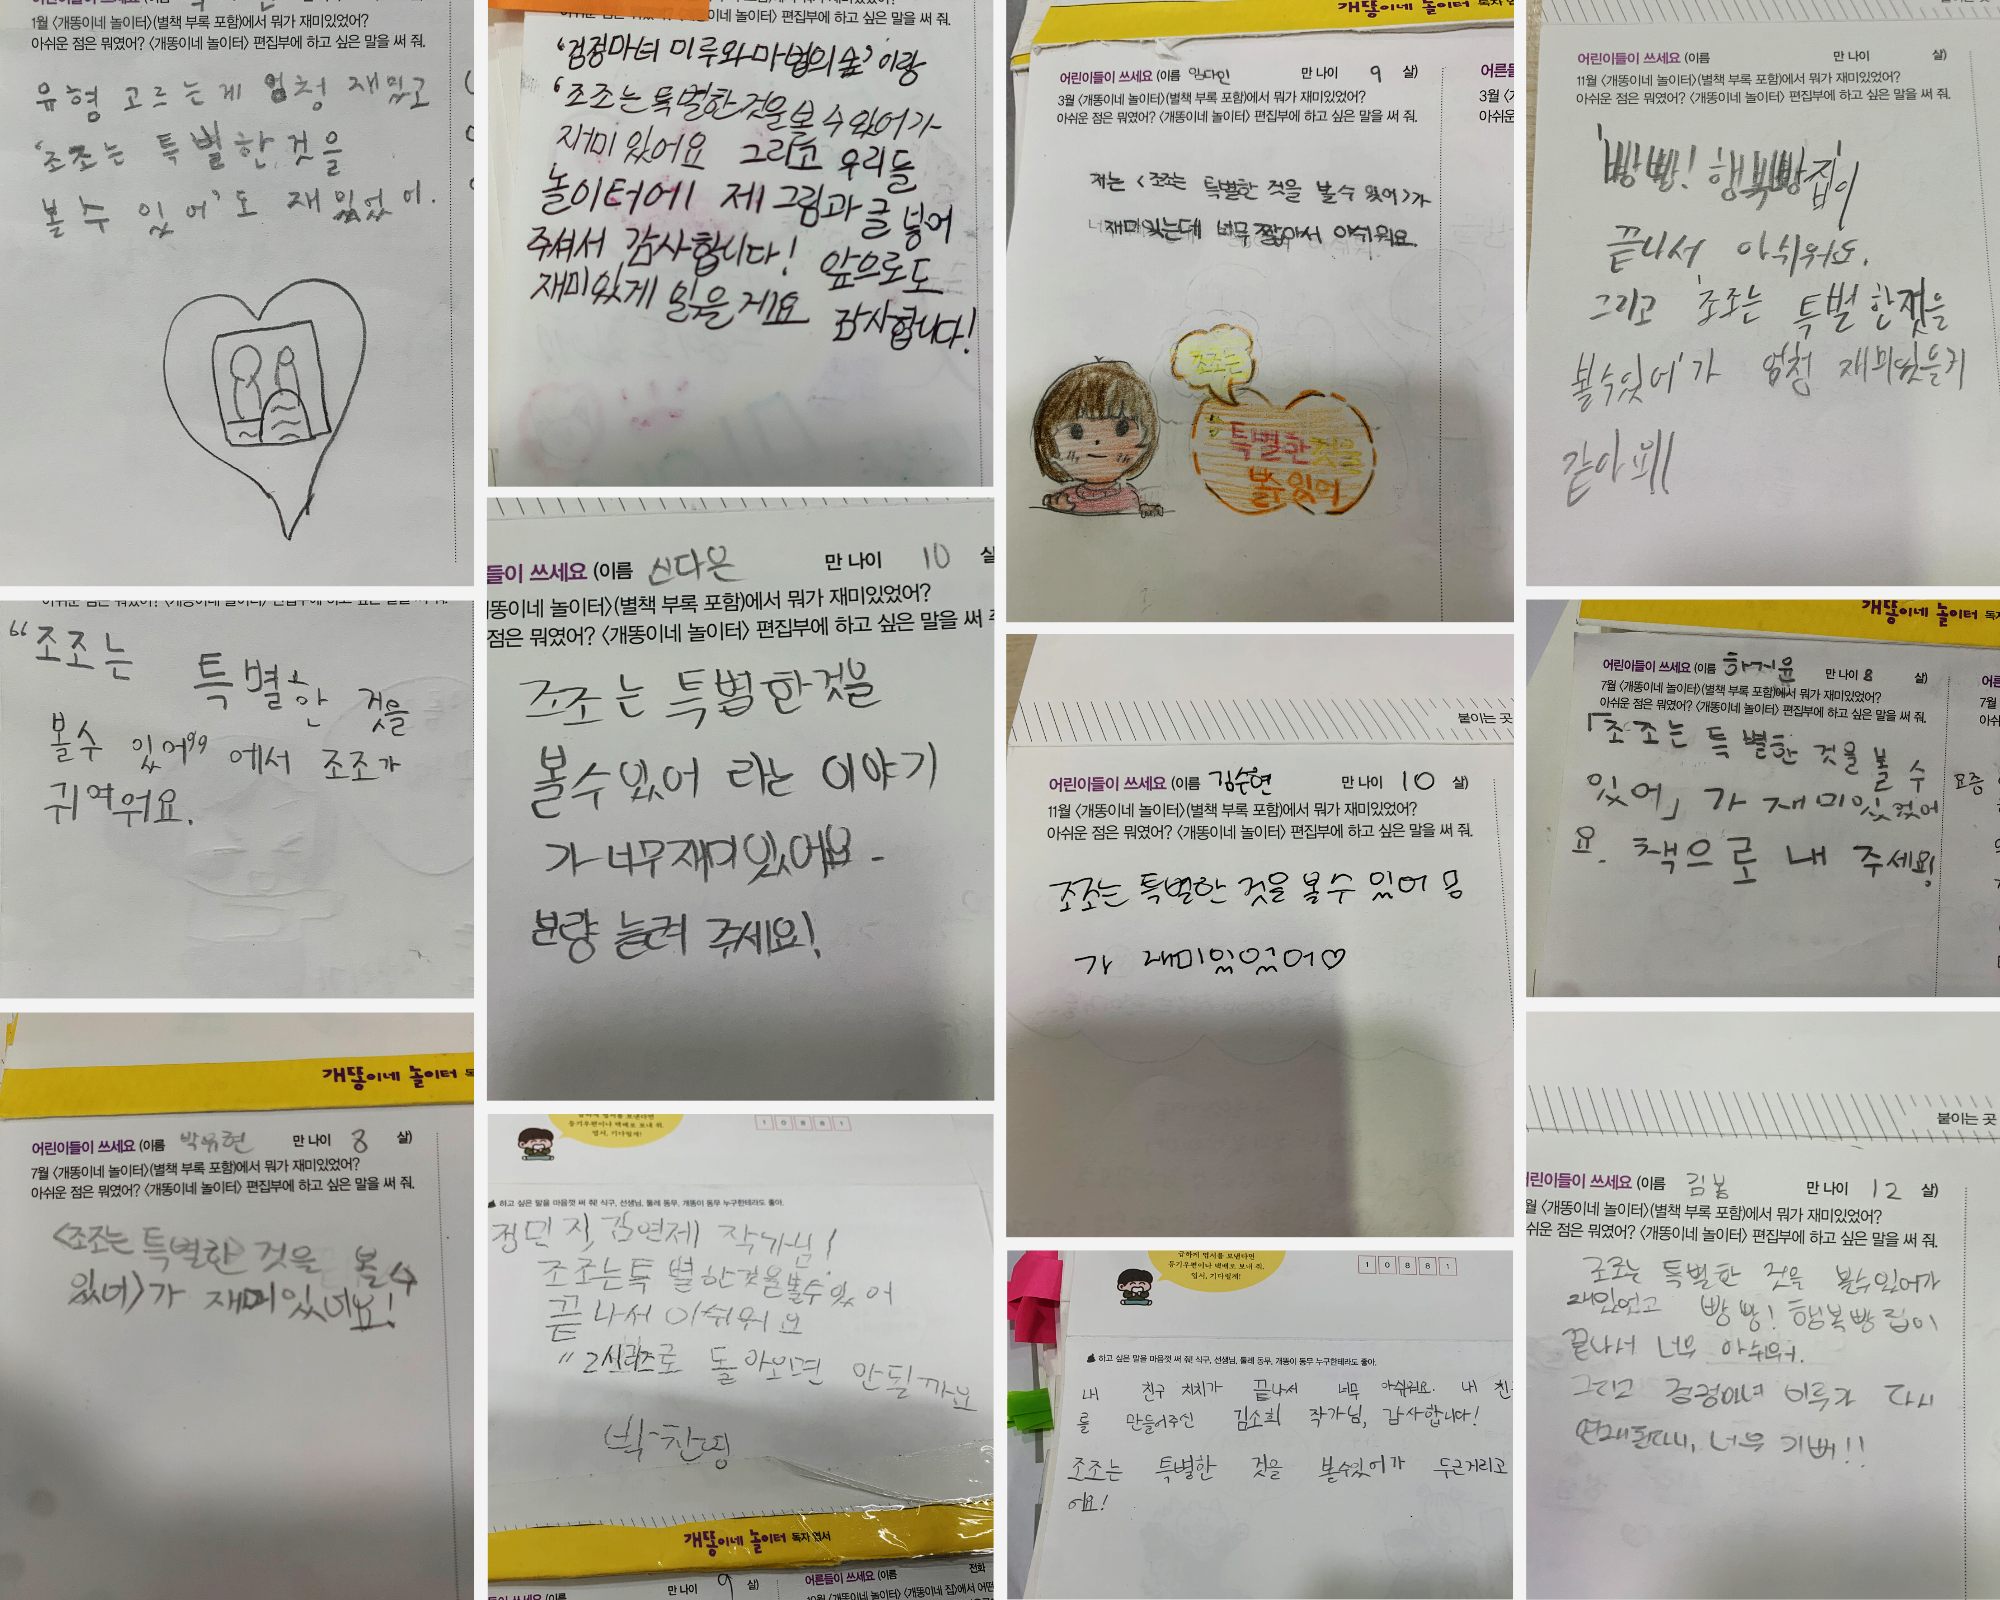 1월 〈개똥이네 놀이터〉(별책 부록 포함)에서 뭐가 재미있었어?
아쉬운 점은 뭐였어? 〈개똥이네 놀이터〉 편집부에 하고 싶은 말을 써 줘.
유형 고르는게 엄청 재밌고
'조조는 특별한 것을
볼 수 있어'도 재밌었어.
"조조는 특별한 것을
볼수 있어" 에서 조조가
귀여워요.
개똥이네 놀이터
어린이들이 쓰세요 (이름 박유현 만 나이 8 살)
7월 〈개똥이네 놀이터〉(별책 부록 포함)에서 뭐가 재미있었어?
아쉬운 점은 뭐였어? 〈개똥이네 놀이터〉 편집부에 하고 싶은 말을 써 줘.
〈조조는 특별한 것을 볼 수
있어〉가 재미있어요!
'검정마녀 미루와 마법의 숲' 이랑
'조조는 특별한 것을 볼 수 있어'가
재미 있어요 그리고 우리들
놀이터에 제 그림과 글 넣어
주셔서 감사합니다! 앞으로도
재미있게 읽을게요 감사합니다!
들이 쓰세요 (이름 신다은 만 나이 10 살
똥이네 놀이터〉(별책 부록 포함)에서 뭐가 재미있었어?
점은 뭐였어? 〈개똥이네 놀이터〉 편집부에 하고 싶은 말을 써
조조는 특별한것을
볼수있어 라는 이야기
가 너무재미있어요.
분량 늘려 주세요!
급하게 엽서를 보낸다면
등기우편이나 택배로 보내 줘.
엽서, 기다릴게!
1 0 8 8 1
하고 싶은 말을 마음껏 써 줘! 식구, 선생님, 둘레 동무, 개똥이 동무 누구한테라도 좋아.
정민지, 김연제 작가님!
조조는 특별한것을볼수있어
끝나서 아쉬워요
"2시리즈로 돌아오면 안될까요
박찬
개똥이네 놀이터 독자 엽서
들이 쓰세요 (이름 만 나이 9 살)
어른들이 쓰세요 (이름 전화
10월 〈개똥이네 놀이터〉 〈개똥이네 집〉에서 어떤
개똥이네 놀이터 독자 엽
어린이들이 쓰세요 (이름 임다인 만 나이 9 살)
3월 〈개똥이네 놀이터〉(별책 부록 포함)에서 뭐가 재미있었어?
아쉬운 점은 뭐였어? 〈개똥이네 놀이터〉 편집부에 하고 싶은 말을 써 줘.
어른들
3월
아쉬운
저는 〈조조는 특별한 것을 볼수 있어〉가
재미있는데 너무 짧아서 아쉬워요.
조조는
특별한것을
볼수있어
붙이는 곳
어린이들이 쓰세요 (이름 김수현 만 나이 10 살)
11월 〈개똥이네 놀이터〉(별책 부록 포함)에서 뭐가 재미있었어?
아쉬운 점은 뭐였어? 〈개똥이네 놀이터〉 편집부에 하고 싶은 말을 써 줘.
조조는 특별한 것을 볼수 있어
가 재미있었어♡
급하게 엽서를 보낸다면
등기우편이나 택배로 보내 줘.
엽서, 기다릴게!
1 0 8 8 1
하고 싶은 말을 마음껏 써 줘! 식구, 선생님, 둘레 동무, 개똥이 동무 누구한테라도 좋아.
내 친구 치치가 끝나서 너무 아쉬워요. 내 친
를 만들어주신 김소희 작가님, 감사합니다!
조조는 특별한 것을 볼수있어가 두근거리고
어요!
어린이들이 쓰세요 (이름 만 나이 살)
11월 〈개똥이네 놀이터〉(별책 부록 포함)에서 뭐가 재미있었어?
아쉬운 점은 뭐였어? 〈개똥이네 놀이터〉 편집부에 하고 싶은 말을 써 줘.
'빵빵! 행복빵집'이
끝나서 아쉬워요.
그리고 '조조는 특별한것을
볼수있어'가 엄청 재미있을거
같아요!!
개똥이네 놀이터 독자
어린이들이 쓰세요 (이름 하지윤 만 나이 8 살)
7월 〈개똥이네 놀이터〉(별책 부록 포함)에서 뭐가 재미있었어?
아쉬운 점은 뭐였어? 〈개똥이네 놀이터〉 편집부에 하고 싶은 말을 써 줘.
어른
7월
아쉬
「조조는 특별한 것을 볼 수
있어」가 재미있었어
요. 책으로 내 주세요!
요즘
붙이는 곳
어린이들이 쓰세요 (이름 김봄 만 나이 12 살)
월 〈개똥이네 놀이터〉(별책 부록 포함)에서 뭐가 재미있었어?
쉬운 점은 뭐였어? 〈개똥이네 놀이터〉 편집부에 하고 싶은 말을 써 줘.
조조는 특별한 것을 볼수있어가
재밌었고 빵빵! 행복빵집이
끝나서 너무 아쉬워.
그리고 검정마녀 미루가 다시
연재된다니, 너무 기뻐!!